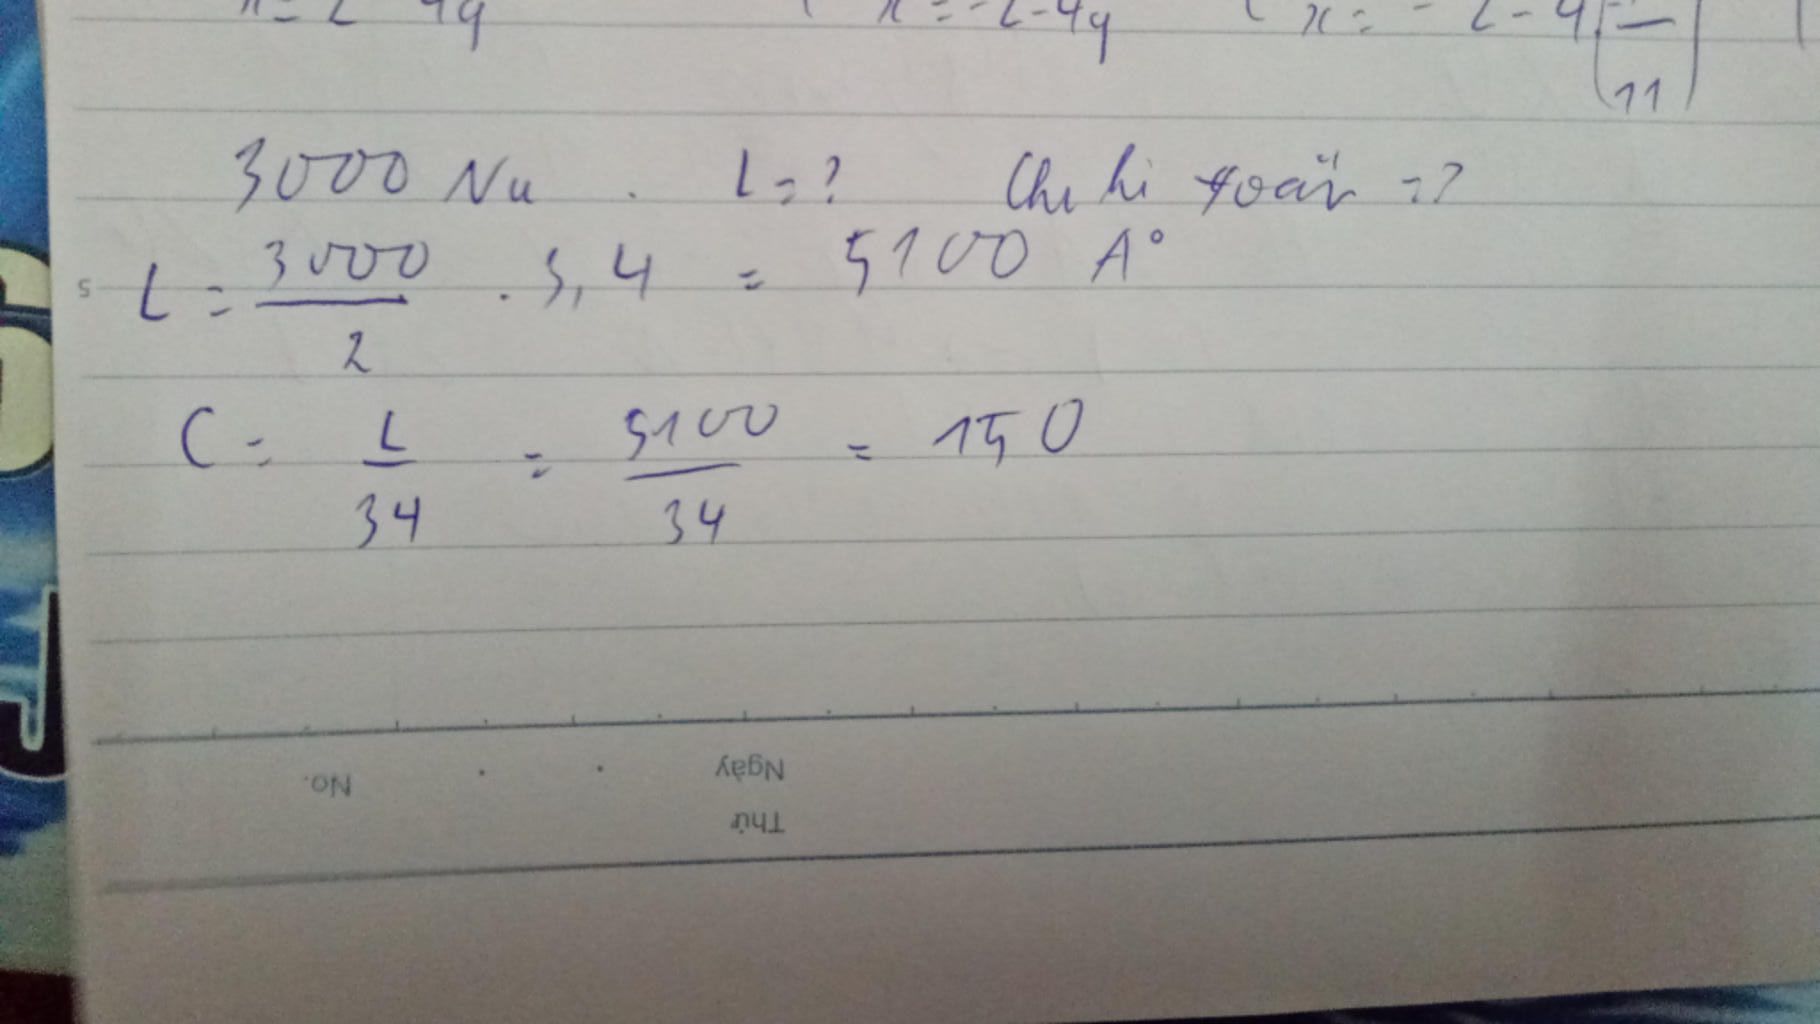 x = 2 - 4y x = -2 - 4y x = -2 - 4
11
3000 Nu . L = ? Chu kì xoắn = ?
L = 3000 / 2 . 3,4 = 5100 A°
C = L / 34 = 5100 / 34 = 150
5
No.
Ngày
Thứ